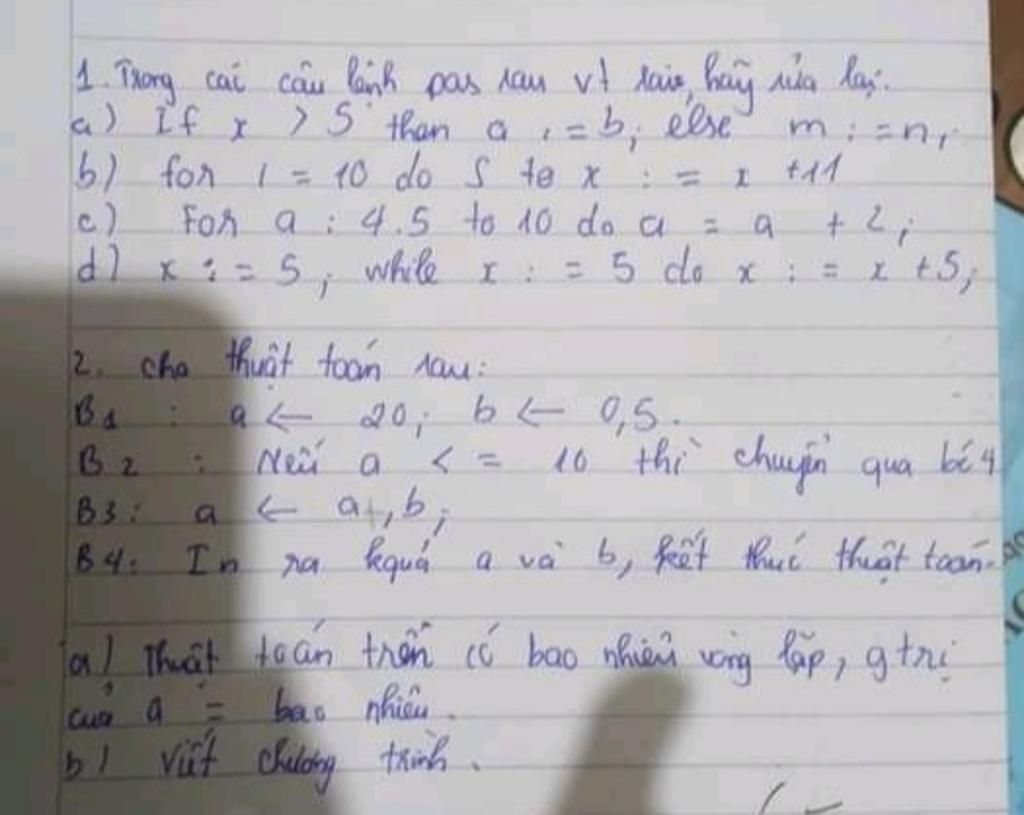 1. Trong các câu lệnh pas sau vt sai, hãy sửa lại.
a) If x > 5 than a := b; else m := n;
b) for i = 10 do 5 to x := x +11
c) For a : 4.5 to 10 do a = a + 2;
d) x := 5; while x := 5 do x := x +5;
2. cho thuật toán sau:
B1 : a ← 20; b ← 0,5.
B2 : Nếu a <= 10 thì chuyển qua bć 4
B3: a ← a + b;
B4: In ra kquả a và b, kết thúc thuật toán.
a) Thuật toán trên có bao nhiêu vòng lặp, g trị
của a = bao nhiêu.
b) Viết chương trình.